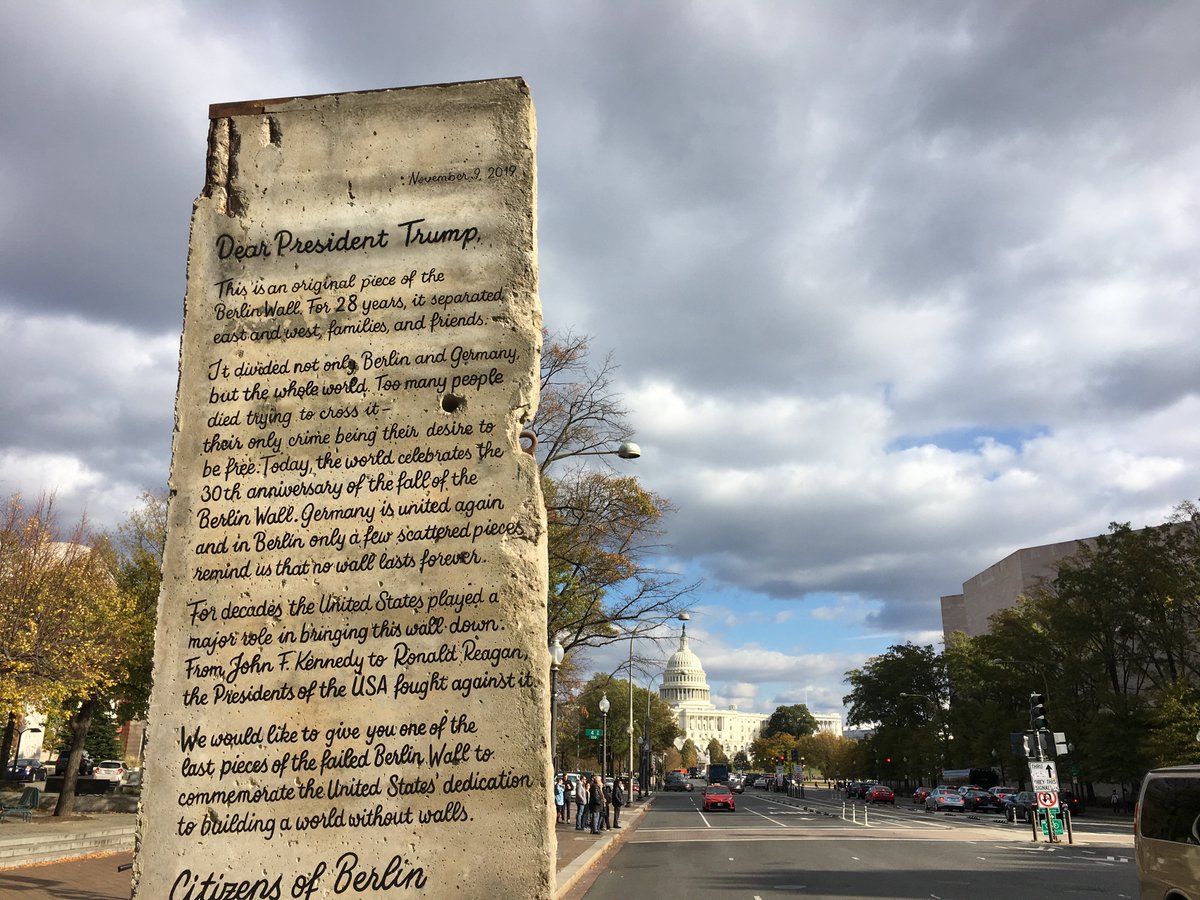 November 9, 2019
Dear President Trump,
This is an original piece of the
Berlin Wall. For 28 years, it separated
east and west, families, and friends.
It divided not only Berlin and Germany,
but the whole world. Too many people
died trying to cross it –
their only crime being their desire to
be free. Today, the world celebrates the
30th anniversary of the fall of the
Berlin Wall. Germany is united again
and in Berlin only a few scattered pieces
remind us that no wall lasts forever.
For decades the United States played a
major role in bringing this wall down.
From John F. Kennedy to Ronald Reagan,
the Presidents of the USA fought against it.
We would like to give you one of the
last pieces of the failed Berlin Wall to
commemorate the United States' dedication
to building a world without walls.
Citizens of Berlin